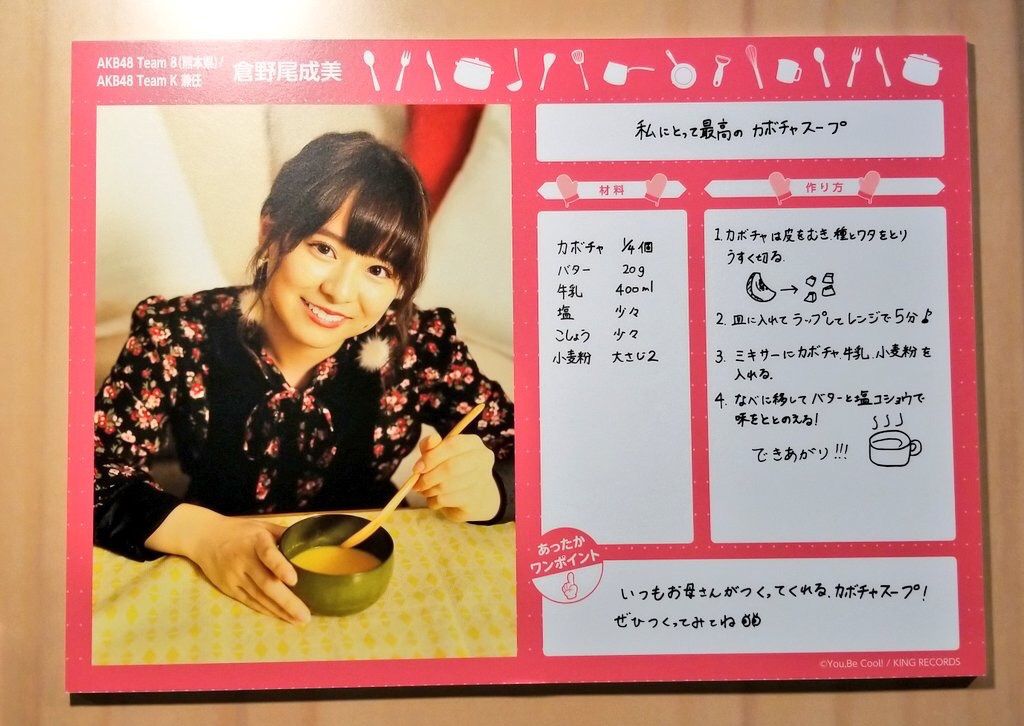 AKB48 Team 8(熊本県)/
AKB48 Team K 兼任
倉野尾成美
私にとって最高の カボチャスープ
材料
カボチャ 1/4個
バター 20g
牛乳 400ml
塩 少々
こしょう 少々
小麦粉 大さじ2
作り方
1.カボチャは皮をむき、種とワタをとり
うすく切る.
2. 皿に入れてラップしてレンジで5分♪
3. ミキサーにカボチャ、牛乳、小麦粉を
入れる.
4. なべに移してバターと塩コショウで
味をととのえる!
できあがり!!!
あったか
ワンポイント
いつもお母さんがつくってくれる、カボチャスープ!
ぜひつくってみてね
©You,Be Cool! / KING RECORDS